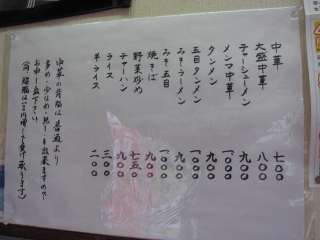 中華 七〇〇
大盛中華 八〇〇
チャーシューメン 一〇〇〇
メンマ中華 九〇〇
タンメン 九〇〇
五目タンメン 一〇〇〇
みそラーメン 九〇〇
みそ五目 一〇〇〇
焼きそば 九〇〇
野菜炒め 七五〇
チャーハン 九〇〇
ライス 三〇〇
半ライス 二〇〇
中華の背脂は普通より
多め・少なめ・無し・も出来ますので
お申し出下さい